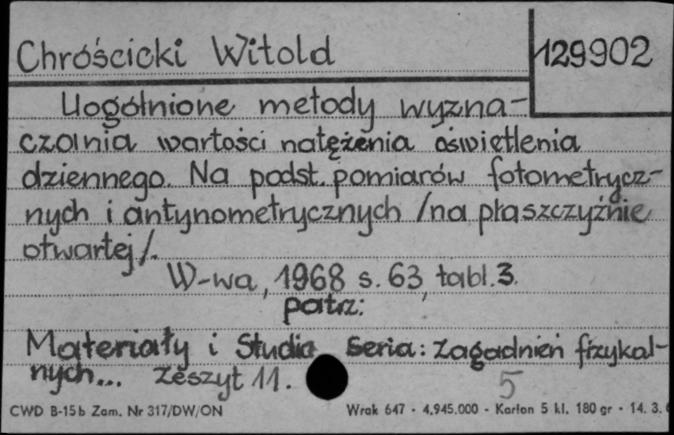 Chróścicki Witold 129902
Uogólnione metody wyzna-
czania wartości natężenia oświetlenia
dziennego. Na podst. pomiarów fotometrycz-
nych i antynometrycznych /na płaszczyźnie
otwartej/.
W-wa, 1968 s. 63, tabl. 3.
patrz:
Materiały i Studia Seria: Zagadnień fizykal-
nych... zeszyt 11.
5
CWD B-15b Zam. Nr 317/DW/ON Wrak 647 - 4.945.000 - Karton 5 kl. 180 gr - 14. 3.